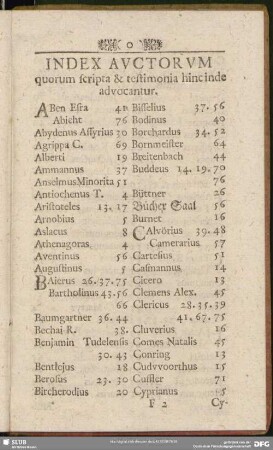 INDEX AVCTORVM
quorum scripta & testimonia hinc inde
advocantur.
ABen Esra 42
Abicht 76
Abydenus Assyrius 30
Agrippa C. 69
Alberti 19
Ammannus 37
Anselmus Minorita 51
Antiochenus T. 4
Aristoteles 13. 17
Arnobius 5
Aslacus 8
Athenagoras 4
Aventinus 56
Augustinus 5
Baierus 26. 37. 75
Bartholinus 43. 56
66
Baumgartner 36. 44
Bechai R. 38.
Benjamin Tudelensis
30. 43
Bentlejus 18
Berosus 23. 30
Bircherodius 20
Bisselius 37. 56
Bodinus 40
Borchardus 34. 52
Bornmeister 64
Breitenbach 44
Buddeus 14. 19. 70
76
Büttner 26
Bücher Saal 56
Burnet 16
Calvörius 39. 48
Camerarius 57
Cartesius 51
Casmannus 14
Cicero 13
Clemens Alex. 45
Clericus 28. 35. 39
41. 67. 75
Cluverius 16
Comes Natalis 45
Conring 13
Cudvvoorthus 15
Cusler 71
Cyprianus 45
F 2 Cy-